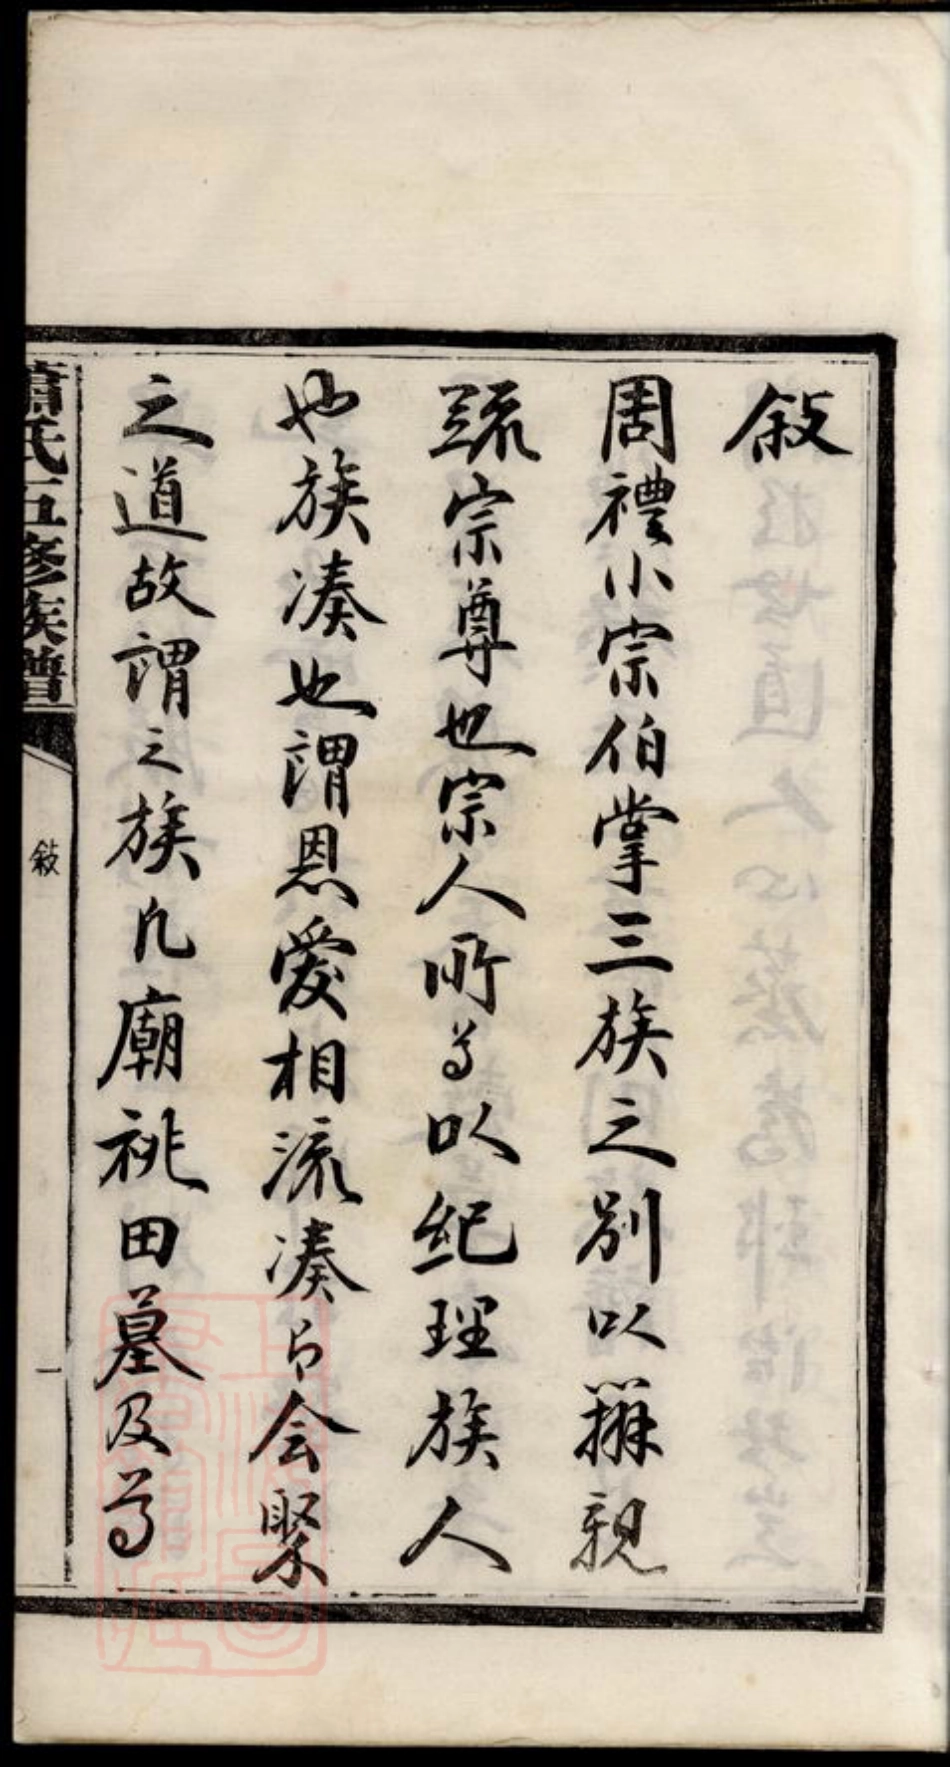 敘
周禮小宗伯掌三族之別以辨親
疏宗尊也宗人所尊以紀理族人
也族湊也謂恩愛相流湊有会聚
之道故謂之族凡廟祧田墓及尊
蕭氏五修族譜
敘
一